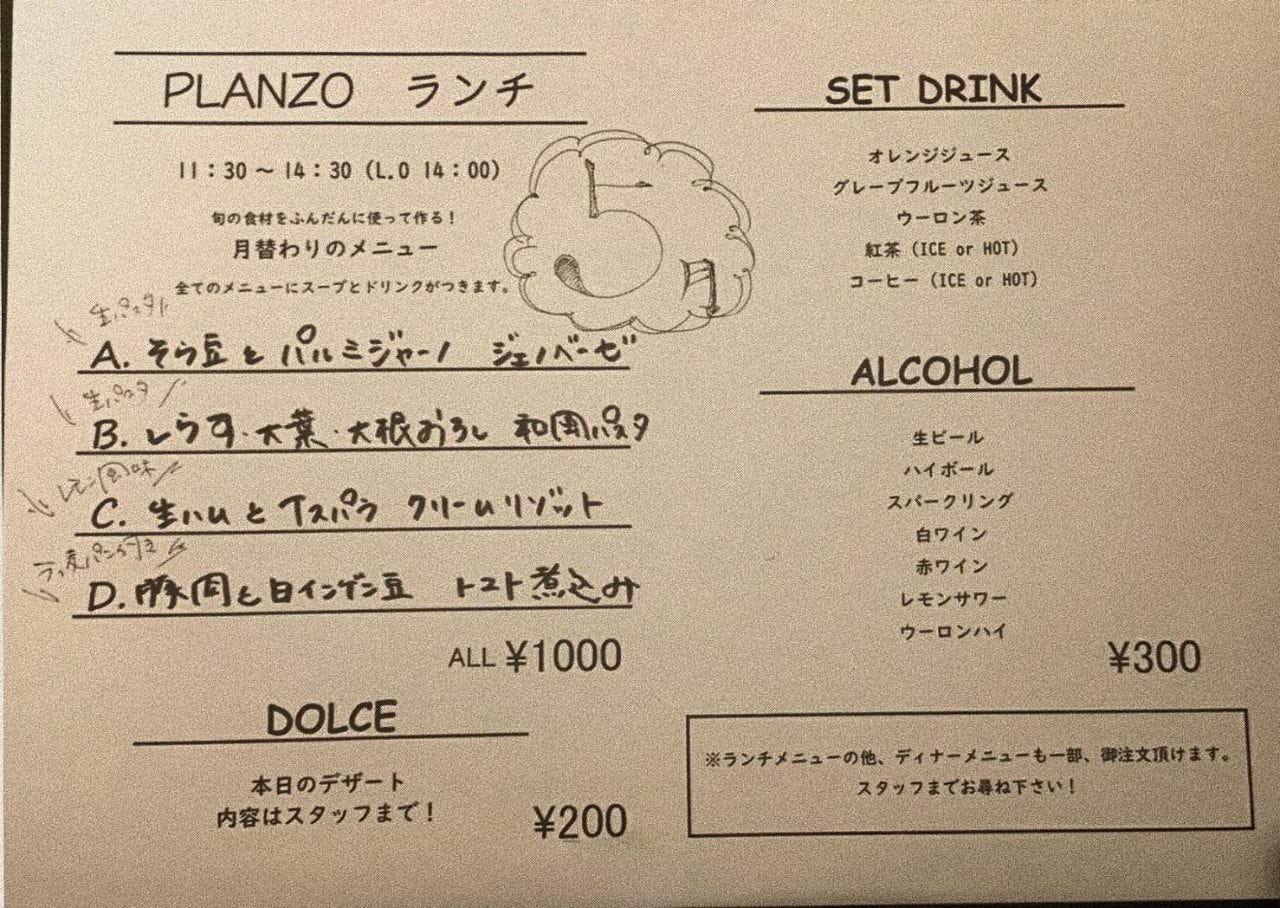 PLANZO ランチ
11:30～14:30 (L.O 14:00)
旬の食材をふんだんに使って作る！
月替わりのメニュー
全てのメニューにスープとドリンクがつきます。
5月
生パスタ
A. そら豆と パルミジャーノ ジェノベーゼ
生パスタ
B. しらす・大葉・大根おろし 和風パスタ
レモン風味
C. 生ハムとアスパラ クリームリゾット
ライ麦パン付き
D. 豚肉と白インゲン豆 トマト煮込み
ALL ¥1000
DOLCE
本日のデザート
内容はスタッフまで！
¥200
SET DRINK
オレンジジュース
グレープフルーツジュース
ウーロン茶
紅茶 (ICE or HOT)
コーヒー (ICE or HOT)
ALCOHOL
生ビール
ハイボール
スパークリング
白ワイン
赤ワイン
レモンサワー
ウーロンハイ
¥300
※ランチメニューの他、ディナーメニューも一部、御注文頂けます。
スタッフまでお尋ね下さい！